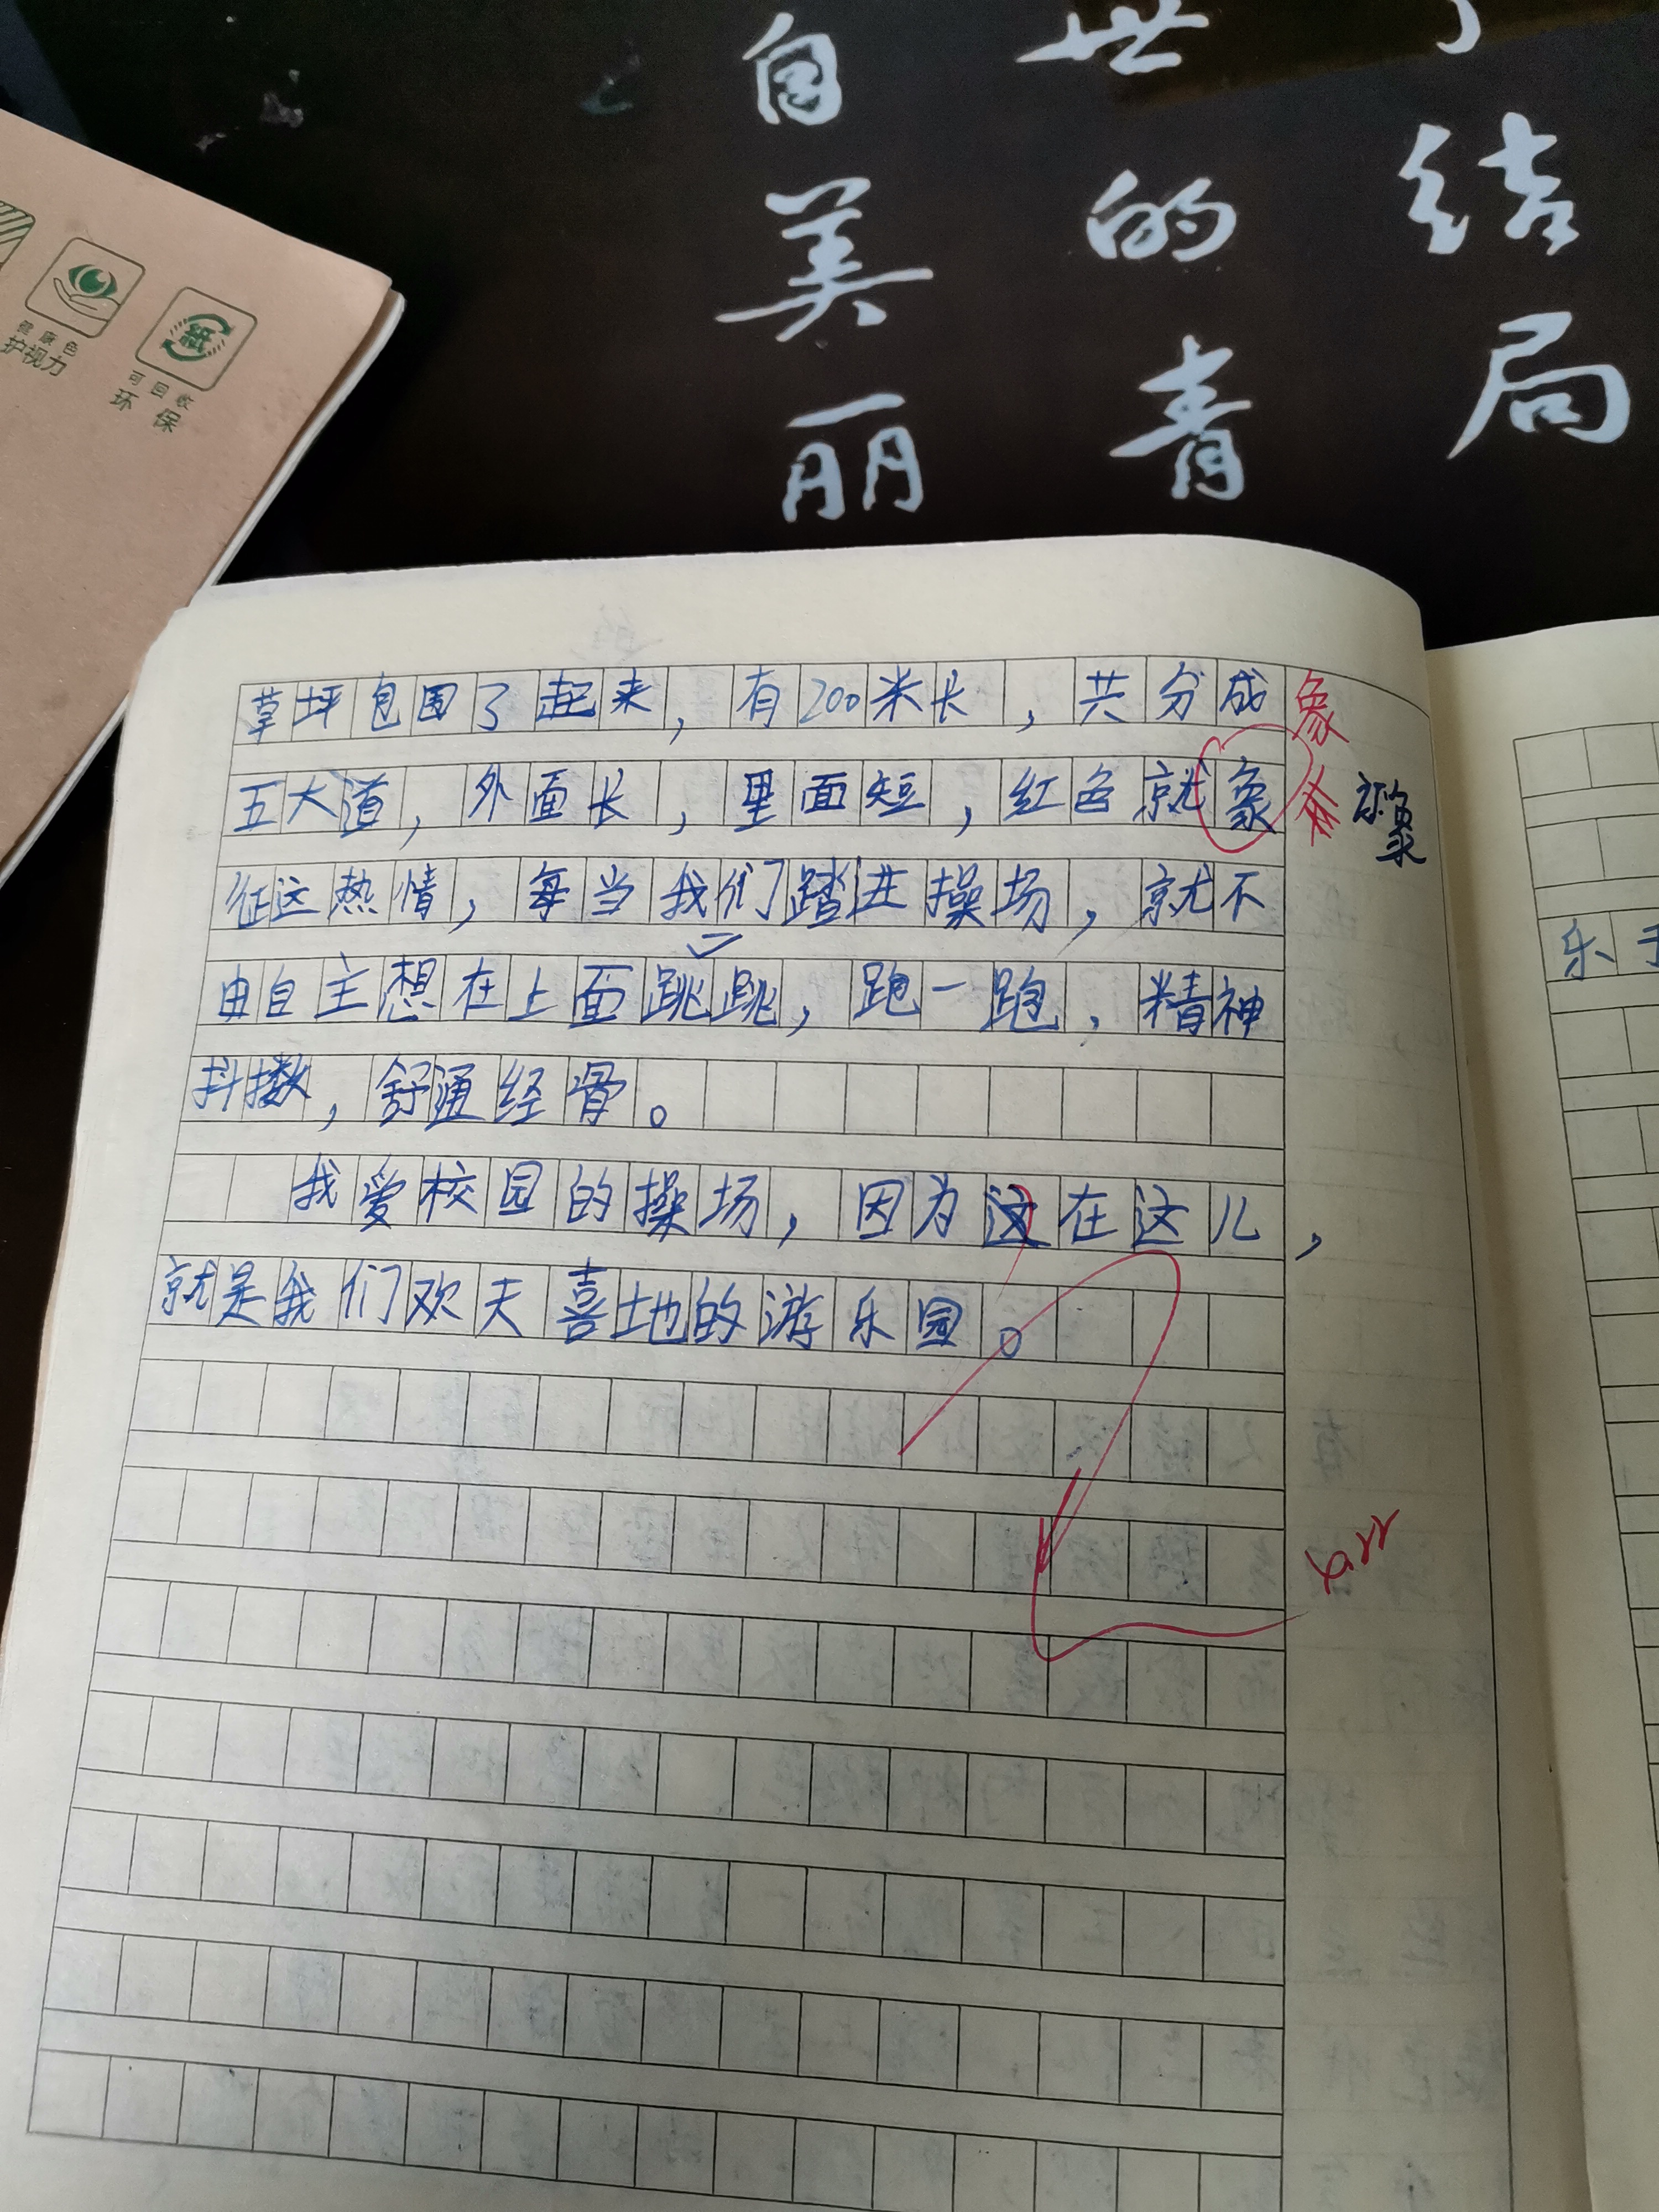 自
美
丽
世
的
青
结
局
健康色
护视力
可回收
环保
紙
草坪包围了起来，有200米长，共分成
象
五大道，外面长，里面短，红色就象
征这热情，每当我们踏进操场，就不
由自主想在上面跳跳，跑一跑，精神
抖擞，舒通经骨。
我爱校园的操场，因为这在这儿，
就是我们欢天喜地的游乐园。
乐于